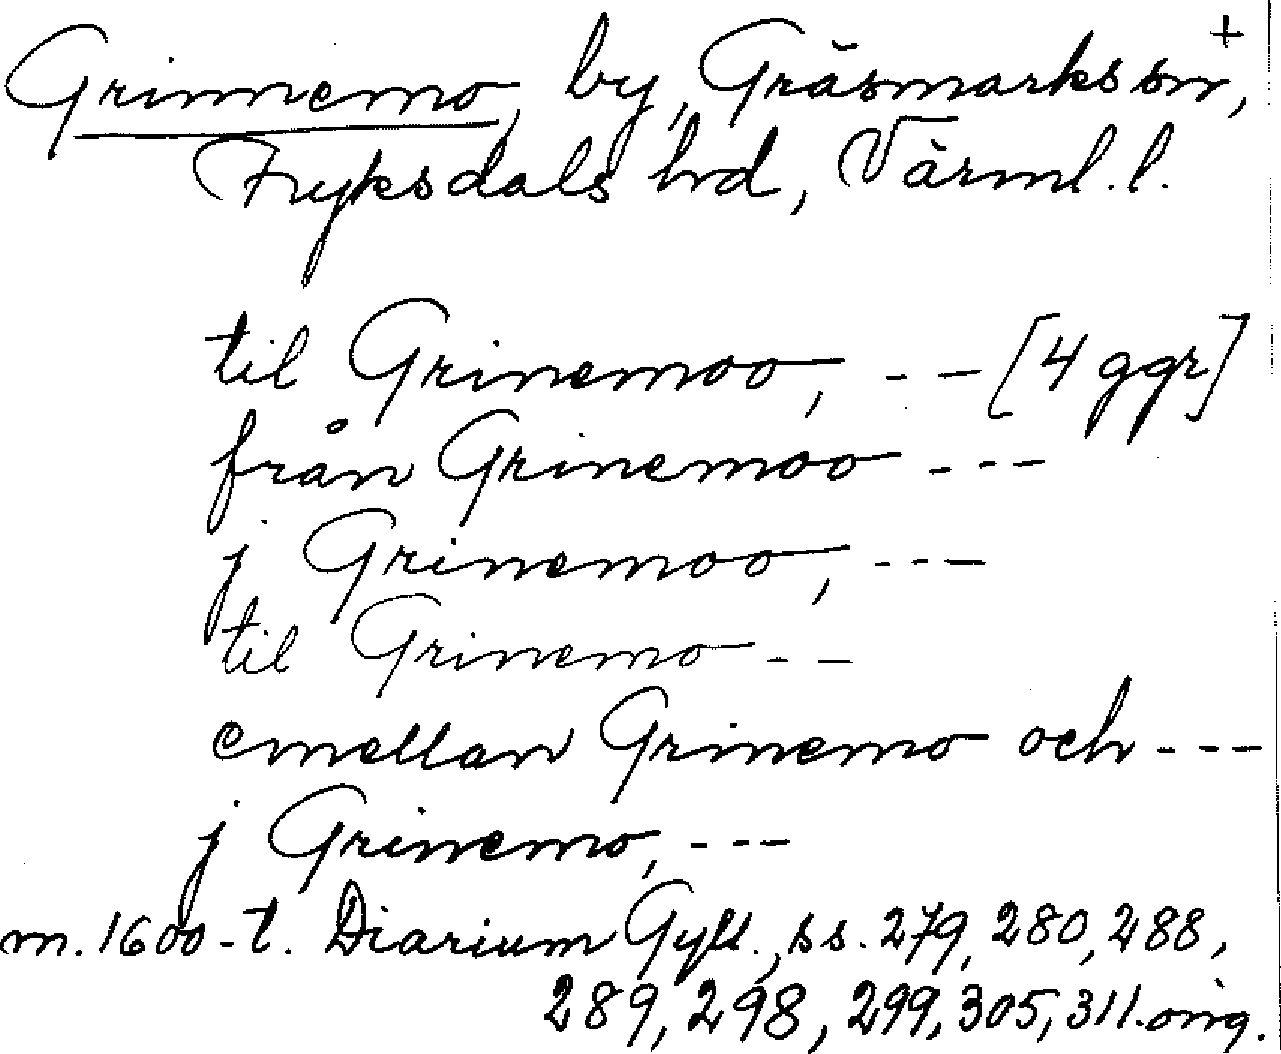 +
Grinnemo, by, Gräsmarks sn,
Fryksdals hd, Värml. l.
til Grinemoo, --- [4 ggr]
från Grinemoo ---
j Grinemoo, ---
til Grinemo --
emellan Grinemo och ---
j Grinemo, ---
m. 1600-t. Diarium Gyll., ss. 279, 280, 288,
289, 298, 299, 305, 311. orig.